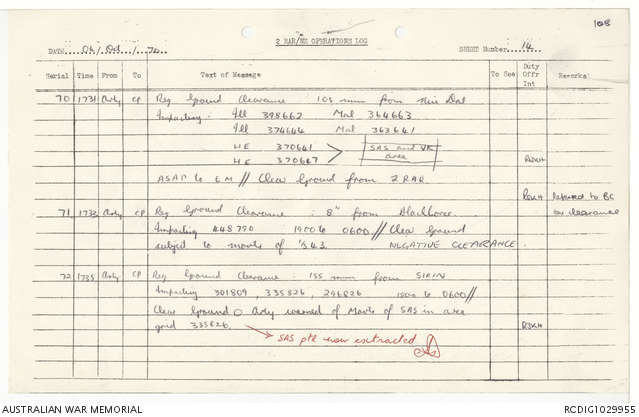 108
2 RAR/NZ OPERATIONS LOG
DATE 04/Oct/70 SHEET Number 14
Serial Time From To Text of Message To See Duty Offr Int Remarks
70 1731 Arty CP Req Ground Clearance: 105 mm from Nui Dat
Impacting: Ill 398662 Mal 364663
Ill 374644 Mal 363641
HE 370641 SAS and VR
HE 370687 area
ASAP to EM // Clear Ground from 2 RAR
71 1732 Arty CP Req Ground Clearance: 8" from Blackhorse referred to BC
Impacting 448790 1900 to 0600 // Clear Ground on clearance
subject to movts of 43. NEGATIVE CLEARANCE
72 1735 Arty CP Req Ground Clearance: 155 mm from
Impacting 301809, 335826, 246826 1900 to 0600 //
Clear Ground Arty warned of Movts of SAS in area
grid 335826
SAS ptl now extracted
AUSTRALIAN WAR MEMORIAL
RCDIG1029955